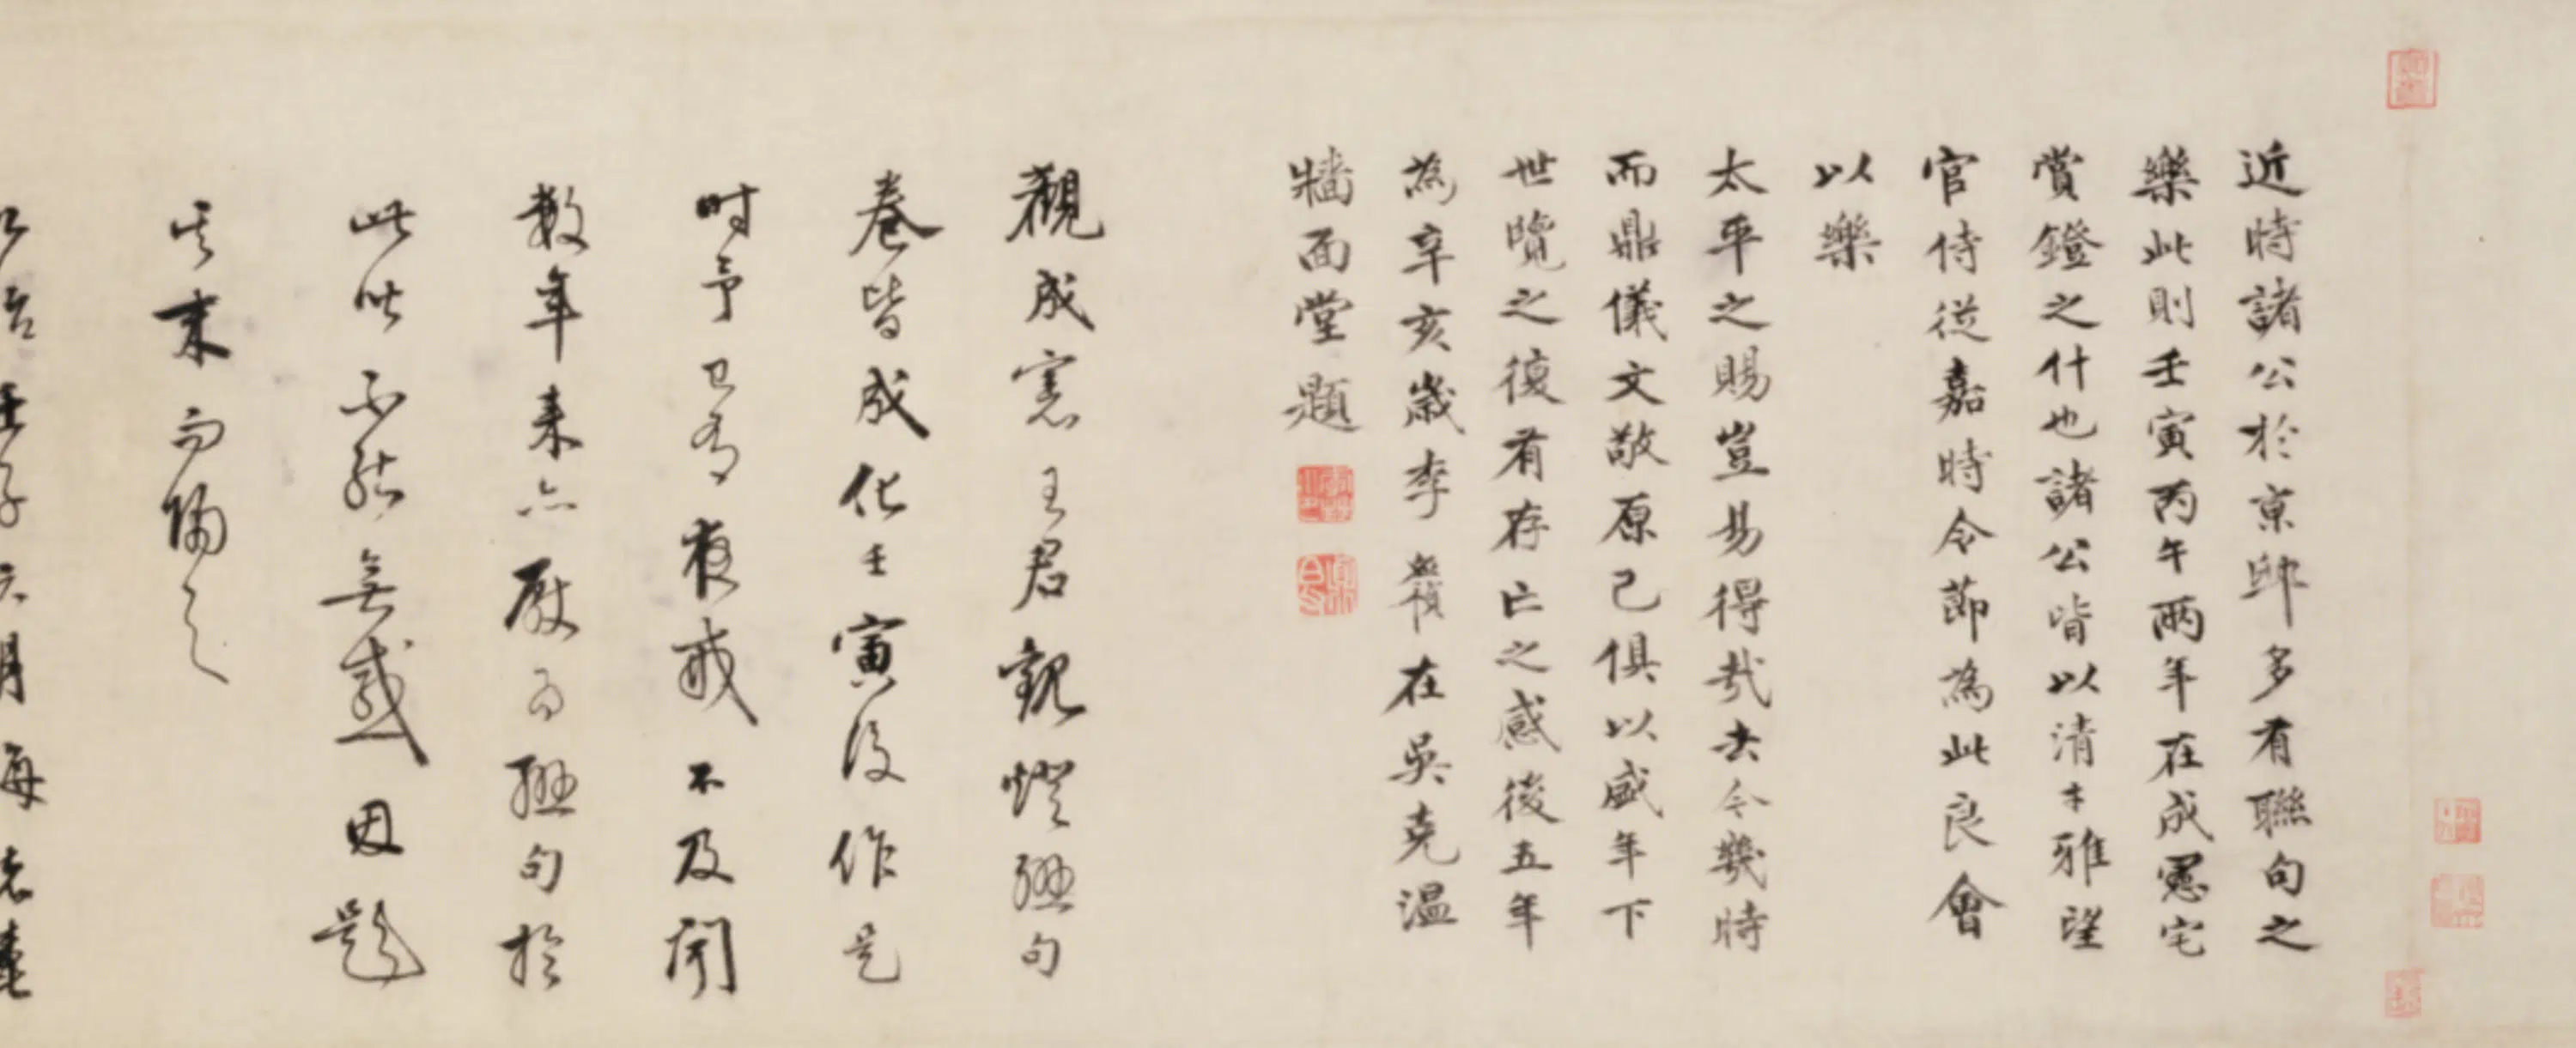 近時諸公於京邸多有聯句之
樂此則壬寅丙午兩年在成憲宅
賞鐙之什也諸公皆以清才雅望
官侍從嘉時令節為此良會
以樂
太平之賜豈易得哉去今幾時
而鼎儀文敬原己俱以盛年下
世覽之復有存亡之感後五年
為辛亥歲李應禎在吳克溫
牆面堂題
觀成憲王君觀燈聯句
卷皆成化壬寅後作是
時予已有夜戒不及聞
數年來亦厭為聯句於
此皆不能無感因題
其末而歸之
壬子六月